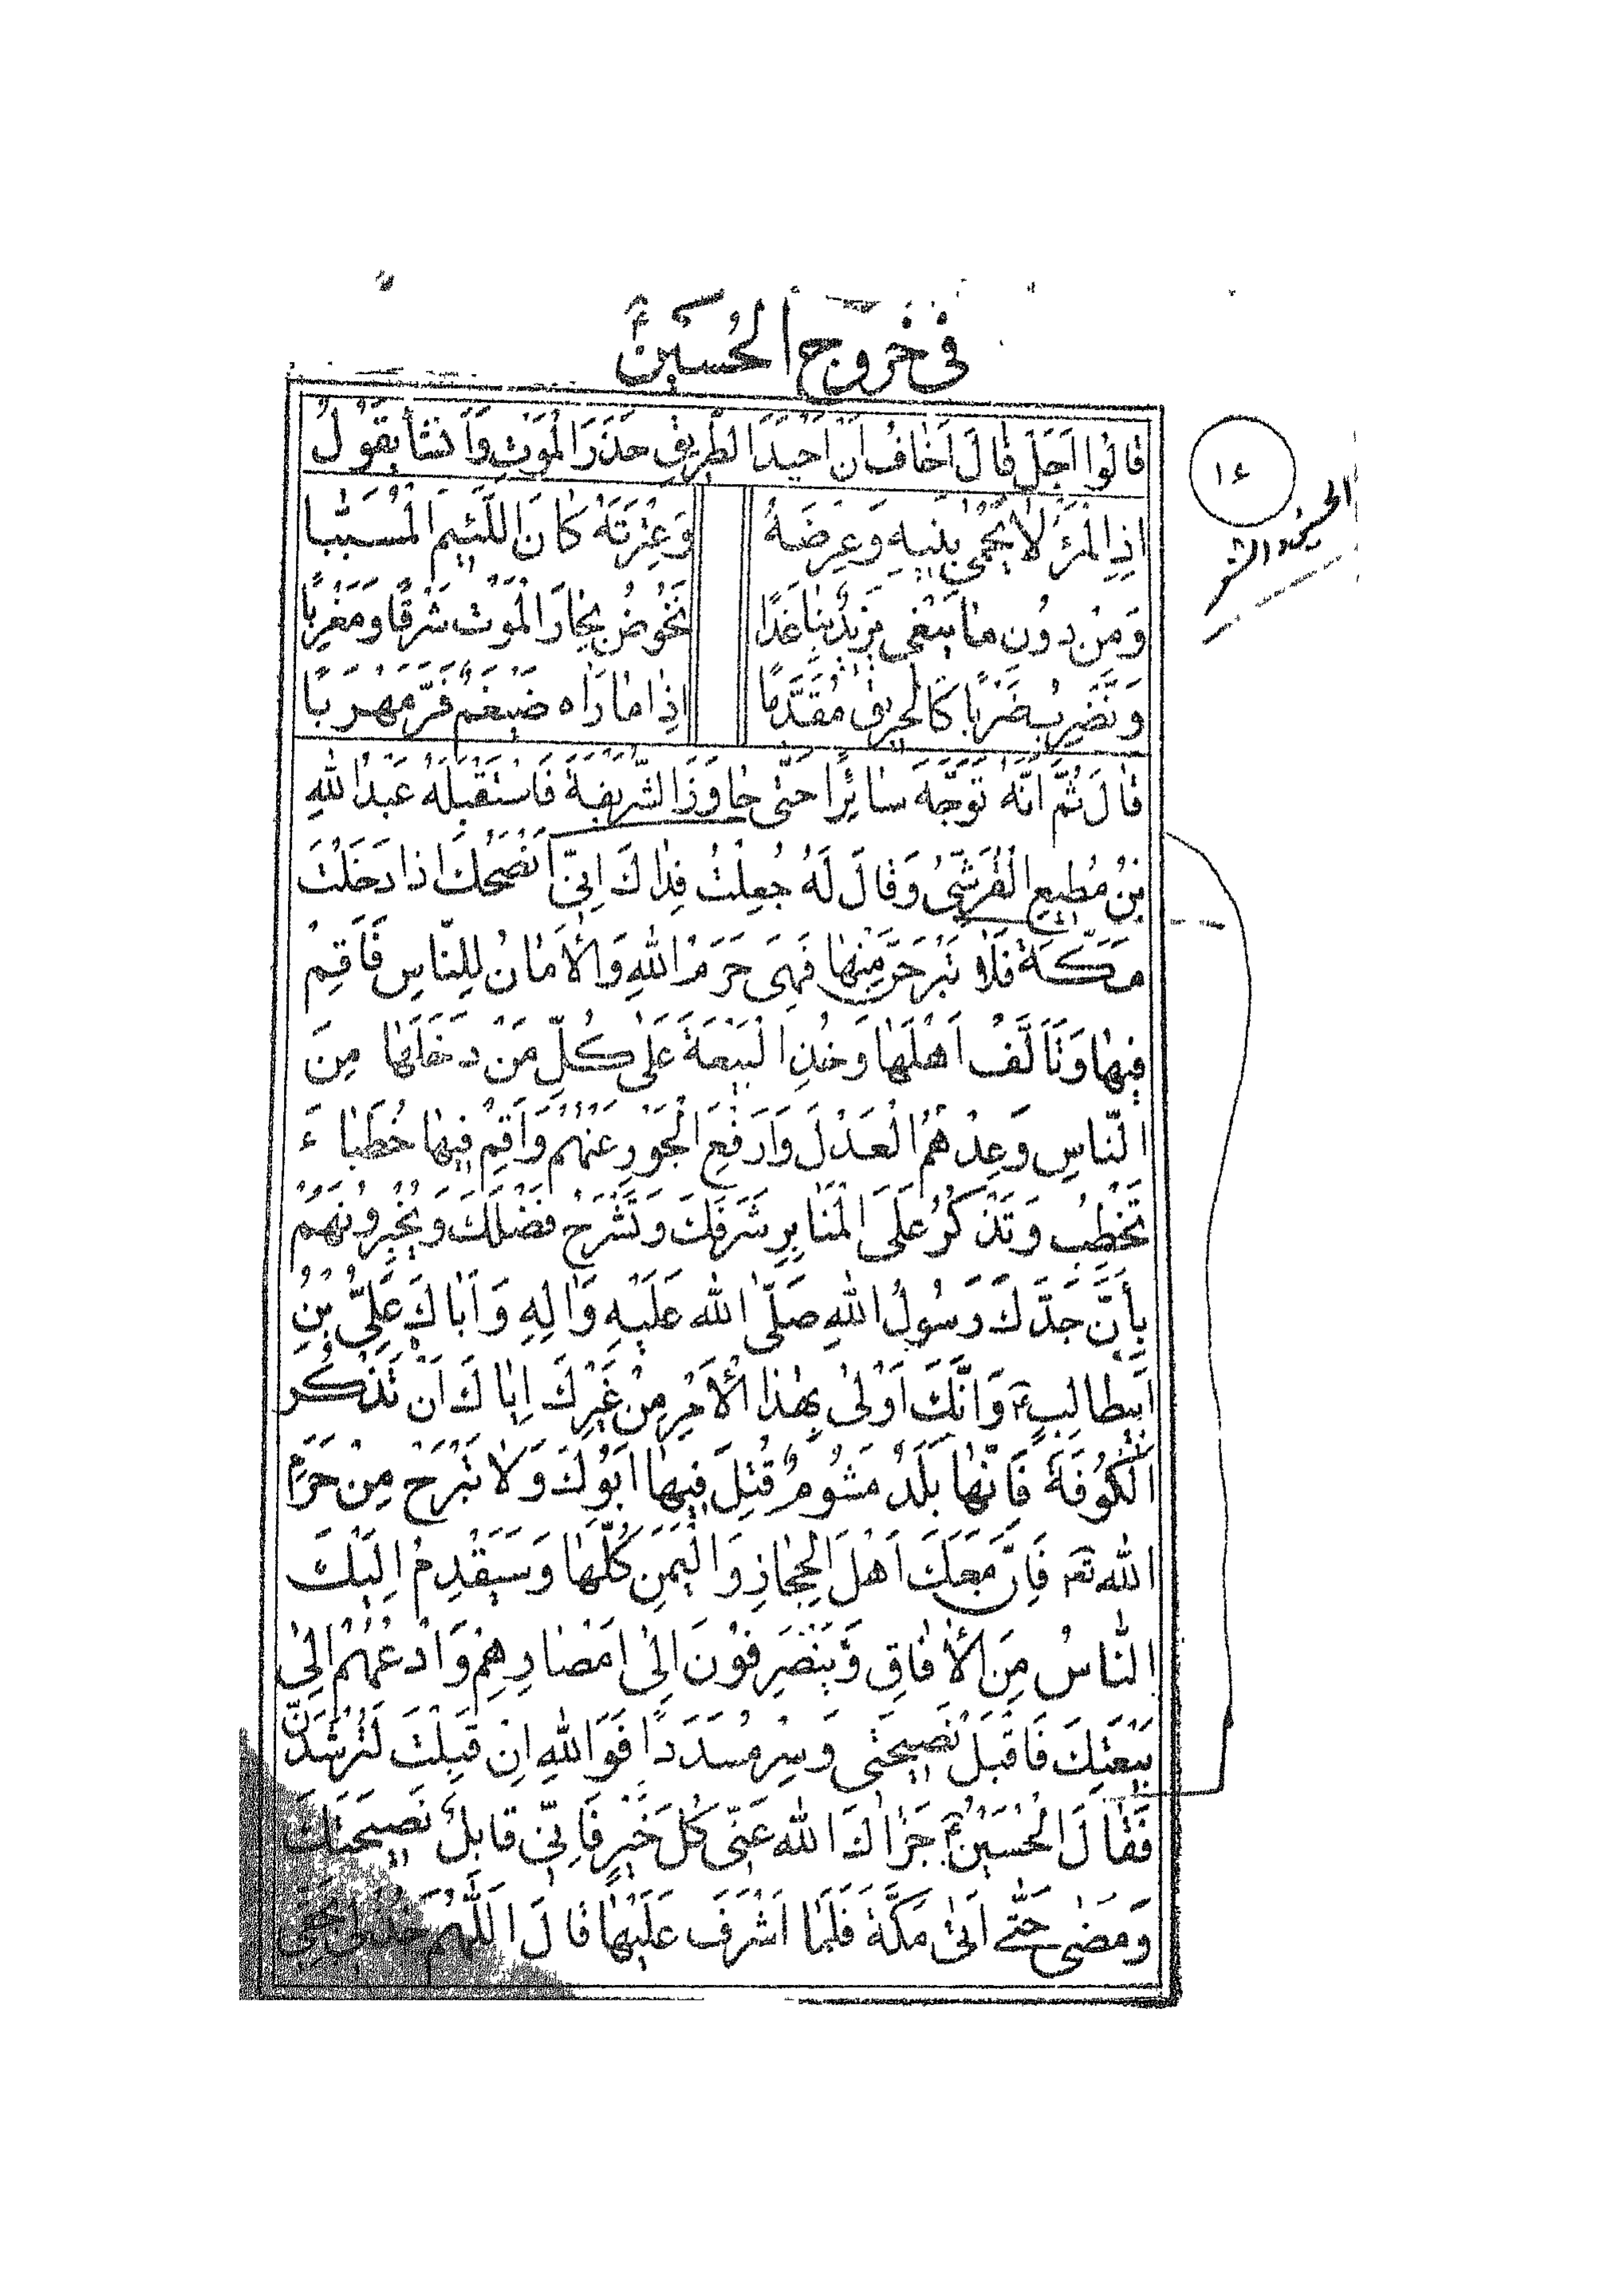 فى خروج الحسين ع
قالُوا اَجَلْ قالَ اَخافُ اَنْ اَحيدَ الطَّريقِ حَذَرَ الْمَوْتِ وَاَنْشَأَ يَقُولُ
اِذِ الْمَرْءُ لا يَحْمى بَنيهِ وَعِرْضَهُ وَعِتْرَتَهُ كانَ اللَّئيمَ الْمُسَبَّبا
وَمِنْ دُونِ ما يَبْغى يَزيدُ بِنا غَدًا نَخُوضُ بِحارَ الْمَوْتِ شَرْقًا وَمَغْرِبًا
وَنَضْرِبُ ضَرْبًا كَالْحَريقِ مُقَدَّمًا اِذا ما رَاٰه ضَيْغَمٌ فَرَّ مَهْرَبًا
قالَ ثُمَّ اَنَّهُ تَوَجَّهَ سائِرًا حَتّى جاوَزَ الشَّريفَةَ فَاسْتَقْبَلَهُ عَبْدُ اللهِ
بْنُ مُطيعِ الْقُرَشِىُّ وَقالَ لَهُ جُعِلْتُ فِداكَ اِنّى اَنْصَحُكَ اذا دَخَلْتَ
مَكَّةَ فَلا تَبْرَحَنَّ مِنْها فَهِىَ حَرَمُ اللهِ وَالْأَمانُ لِلنّاسِ فَاَقِمْ
فيها وَتَأَلَّفْ اَهْلَها وَخُذِ الْبَيْعَةَ عَلى كُلِّ مَنْ دَخَلَها مِنَ
النّاسِ وَعِدْهُمُ الْعَدْلَ وَارْفَعِ الْجَوْرِ عَنْهُمْ وَاَقِمْ فيها خُطَباءَ
تَخْطُبُ وَتَذْكُرُ عَلَى الْمَنابِرِ شَرَفَكَ وَتَشْرَحُ فَضْلَكَ وَيُخْبِرُونَهُمْ
بِأَنَّ جَدَّكَ رَسُولُ اللهِ صَلَّى الله عَلَيْهِ وَاٰلِهِ وَاَباكَ عَلِىُّ بْنِ
اَبيطالِبٍ ع وَاَنَّكَ اَوْلى بِهٰذَا الْأَمْرِ مِنْ غَيْرِكَ اِيّاكَ اَنْ تَذْكُر
الْكُوفَةَ فَاِنَّها بَلَدٌ مَشُومٌ قُتِلَ فيها اَبُوكَ وَلا تَبْرَحْ مِنْ حَرَمِ
الله تعَ فَاِنَّ مَعَكَ اَهْلَ الْحِجازِ وَالْيَمَنِ كُلَّها وَسَيَقْدِمُ اِلَيْكَ
النّاسُ مِنَ الْأٰفاقِ وَيَنْصَرِفُونَ اِلى اَمْصارِهِمْ وَادْعُهُمْ اِلى
بَيْعَتِكَ فَاقْبَلْ نَصيحَتى وَسِرْ مُسَدَّدًا فَوَاللهِ اِنْ قَبِلْتَ لَتُرْشَدَنَّ
فَقالَ الْحُسَيْنُ ع جَزاكَ الله عَنّى كُلَّ خَيْرٍ فَاِنّى قابِلٌ نَصيحَتَكَ
وَمَضى حَتّى اَتى مَكَّةَ فَلَمّا اَشْرَفَ عَلَيْها قالَ اللّهُمَّ خُذْلى بِحَقّى
١٤